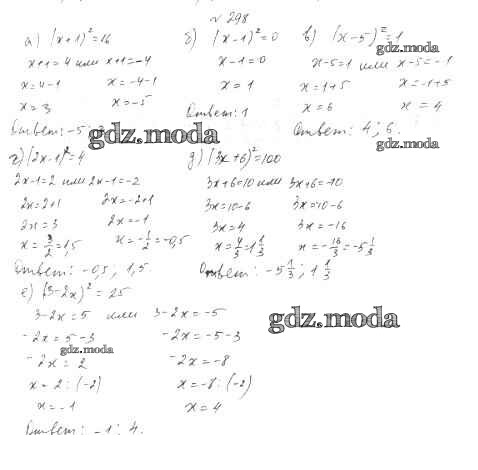 № 298
а) (x+1)²=16
x+1=4 или x+1=-4
x=4-1 x=-4-1
x=3 x=-5
Ответ: -5;
б) (x-1)²=0
x-1=0
x=1
Ответ: 1
в) (x-5)²=1
x-5=1 или x-5=-1
x=1+5 x=-1+5
x=6 x=4
Ответ: 4; 6.
г) (2x-1)²=4
2x-1=2 или 2x-1=-2
2x=2+1 2x=-2+1
2x=3 2x=-1
x=3/2=1,5 x=-1/2=-0,5
Ответ: -0,5; 1,5.
д) (3x+6)²=100
3x+6=10 или 3x+6=-10
3x=10-6 3x=-10-6
3x=4 3x=-16
x=4/3=1 1/3 x=-16/3=-5 1/3
Ответ: -5 1/3; 1 1/3
е) (3-2x)²=25
3-2x=5 или 3-2x=-5
-2x=5-3 -2x=-5-3
-2x=2 -2x=-8
x=2:(-2) x=-8:(-2)
x=-1 x=4
Ответ: -1; 4.
gdz.moda
gdz.moda
gdz.moda
gdz.moda
gdz.moda